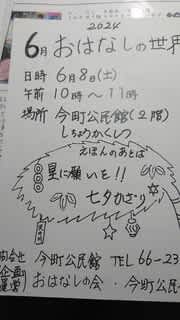 2024
6月 おはなしの世界
日時 6月8日(土)
午前 10時〜11時
場所 今町公民館(2階)
しちょうかくしつ
えほんのあとは
星に願いを!!
七夕かざり
今町公民館 TEL 66-23
企画
運営 おはなしの会・今町公